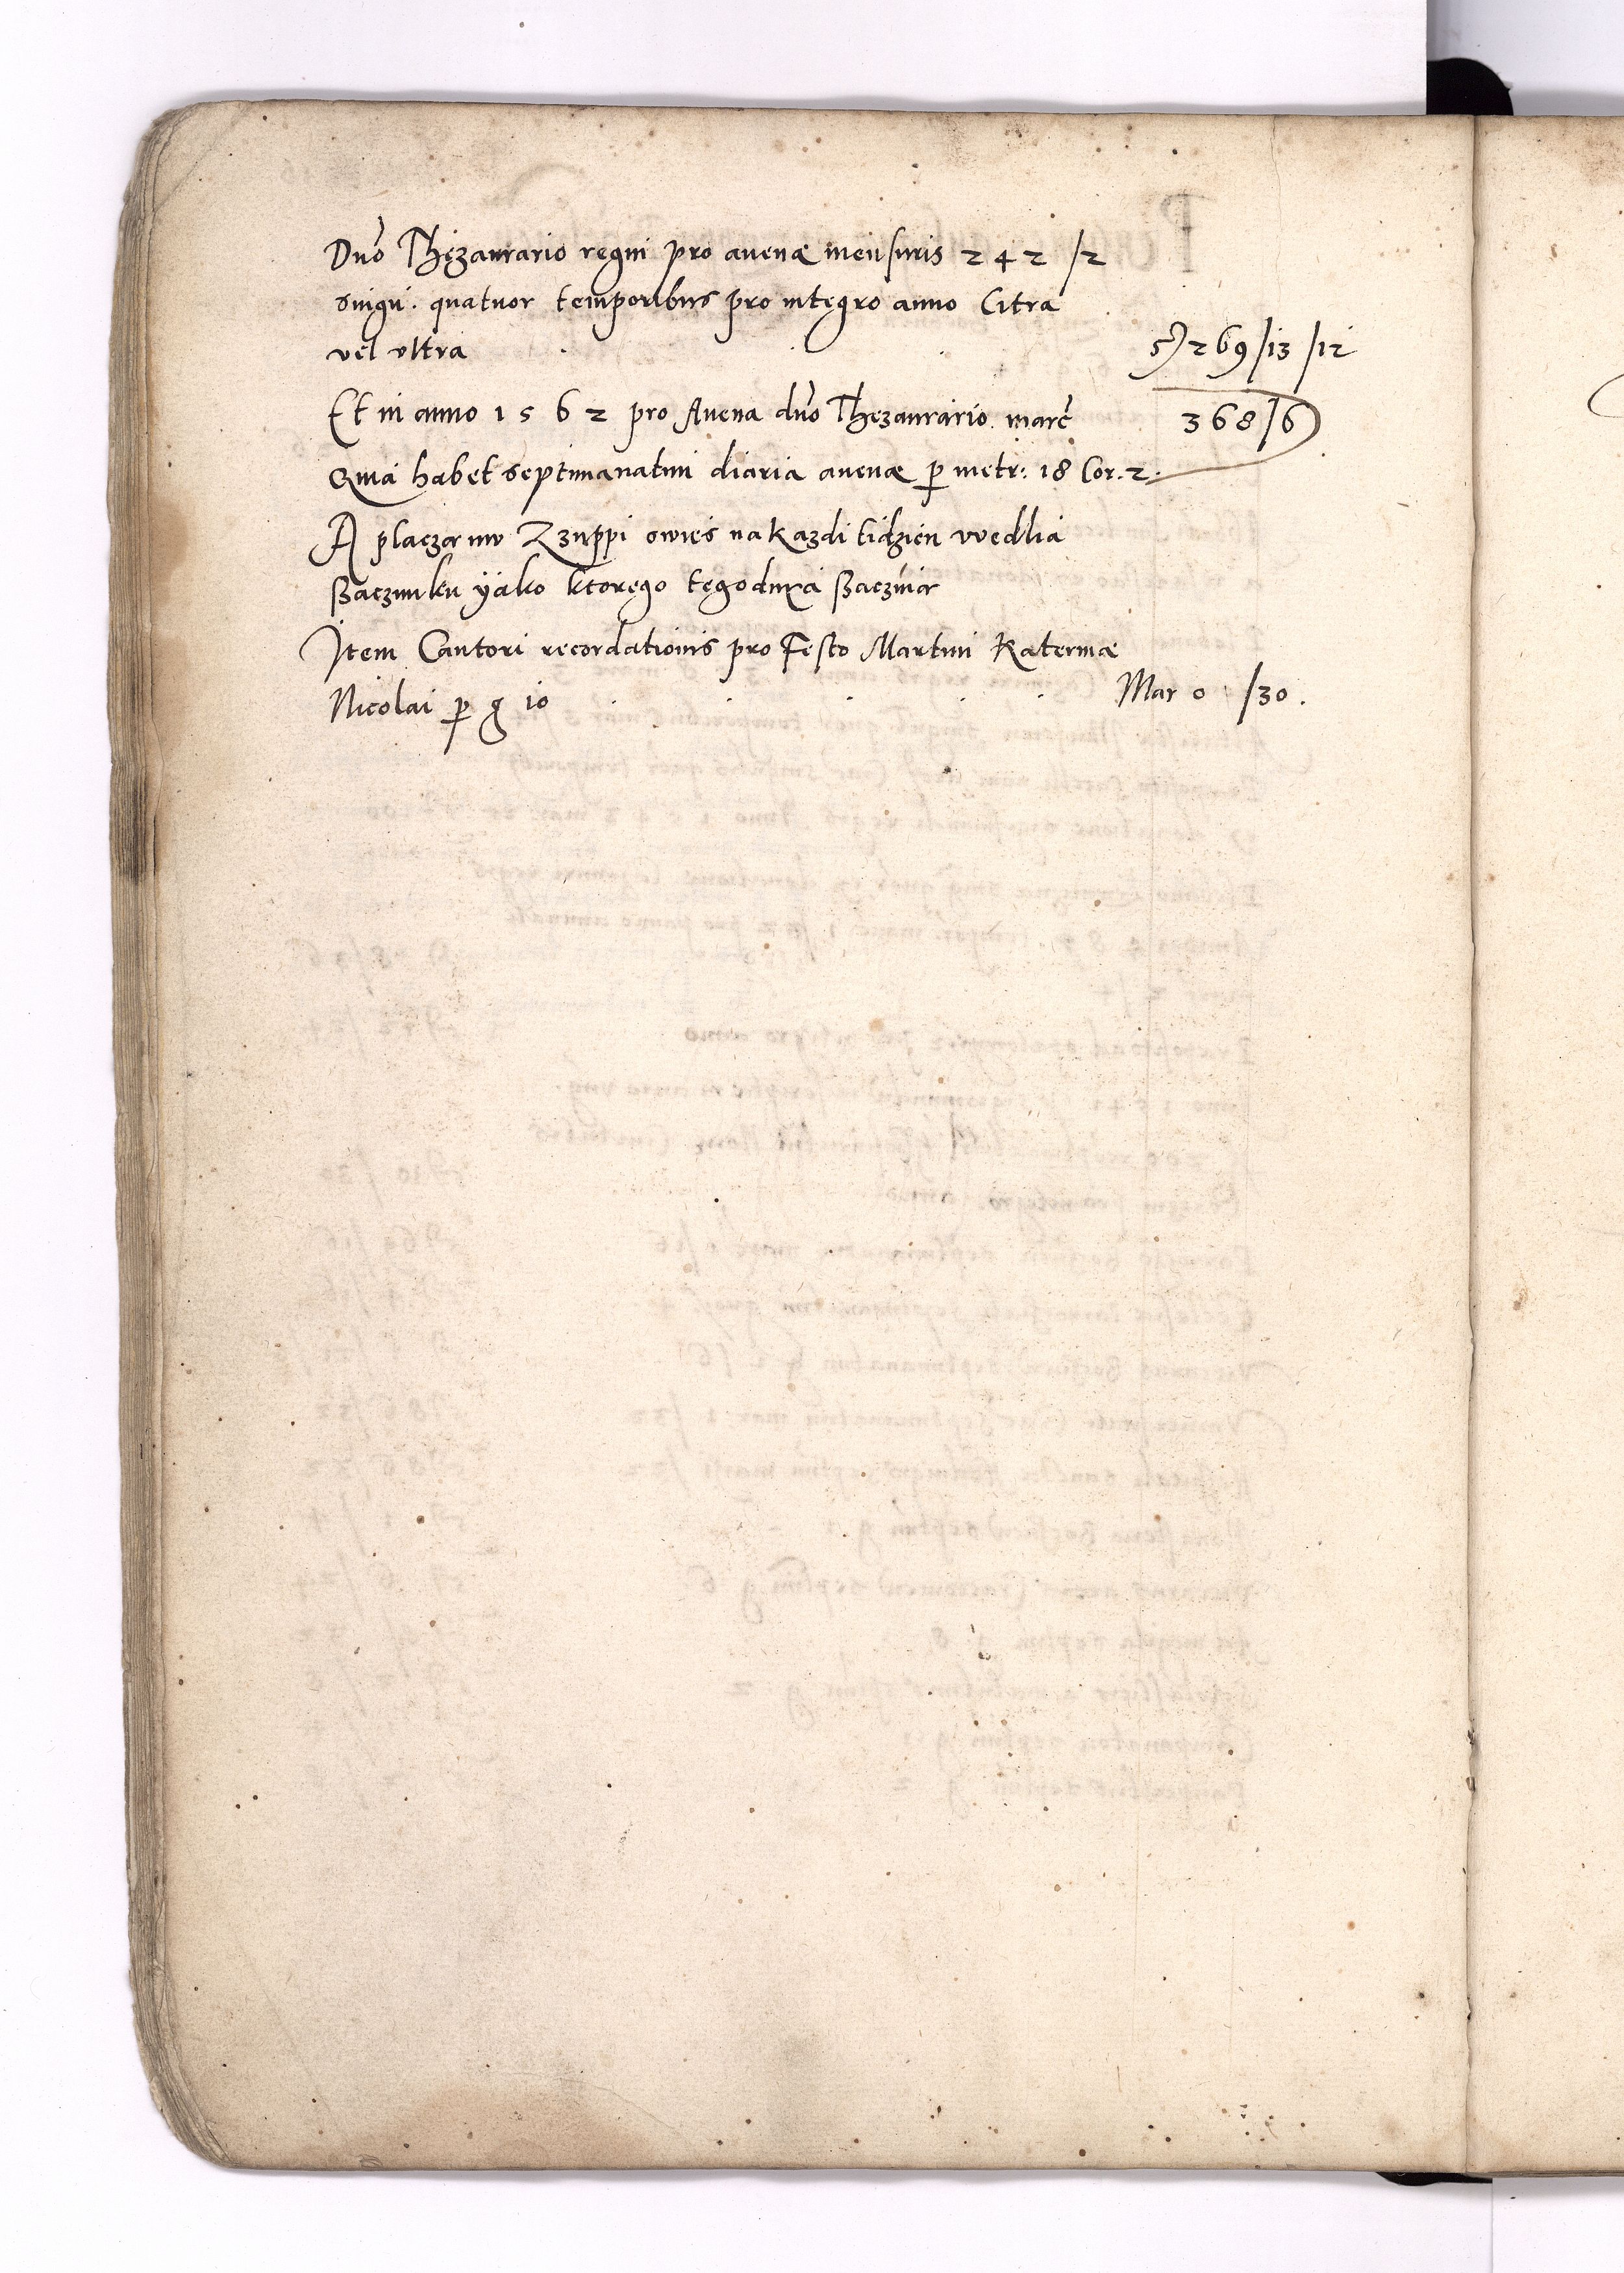 Dno Thezaurario regni pro auenæ mensuris 242 /2
singu: quatuor temporibus pro integro anno Citra
vel vltra 269/13 /12
Et in anno 1562 pro Auena dno Thezaurario marc 368/6
Quia habet septimanatim diaria auenæ p metr: 18 Cor. 2.
A placzą mv Zzuppi owies na kazdi tidzien wedlia
ßaczunku yako ktorego tegodnia ßaczuią
Item Cantori recordationis pro Festo Martini Katerinæ
Nicolai p g 10 Mar 0 /30.